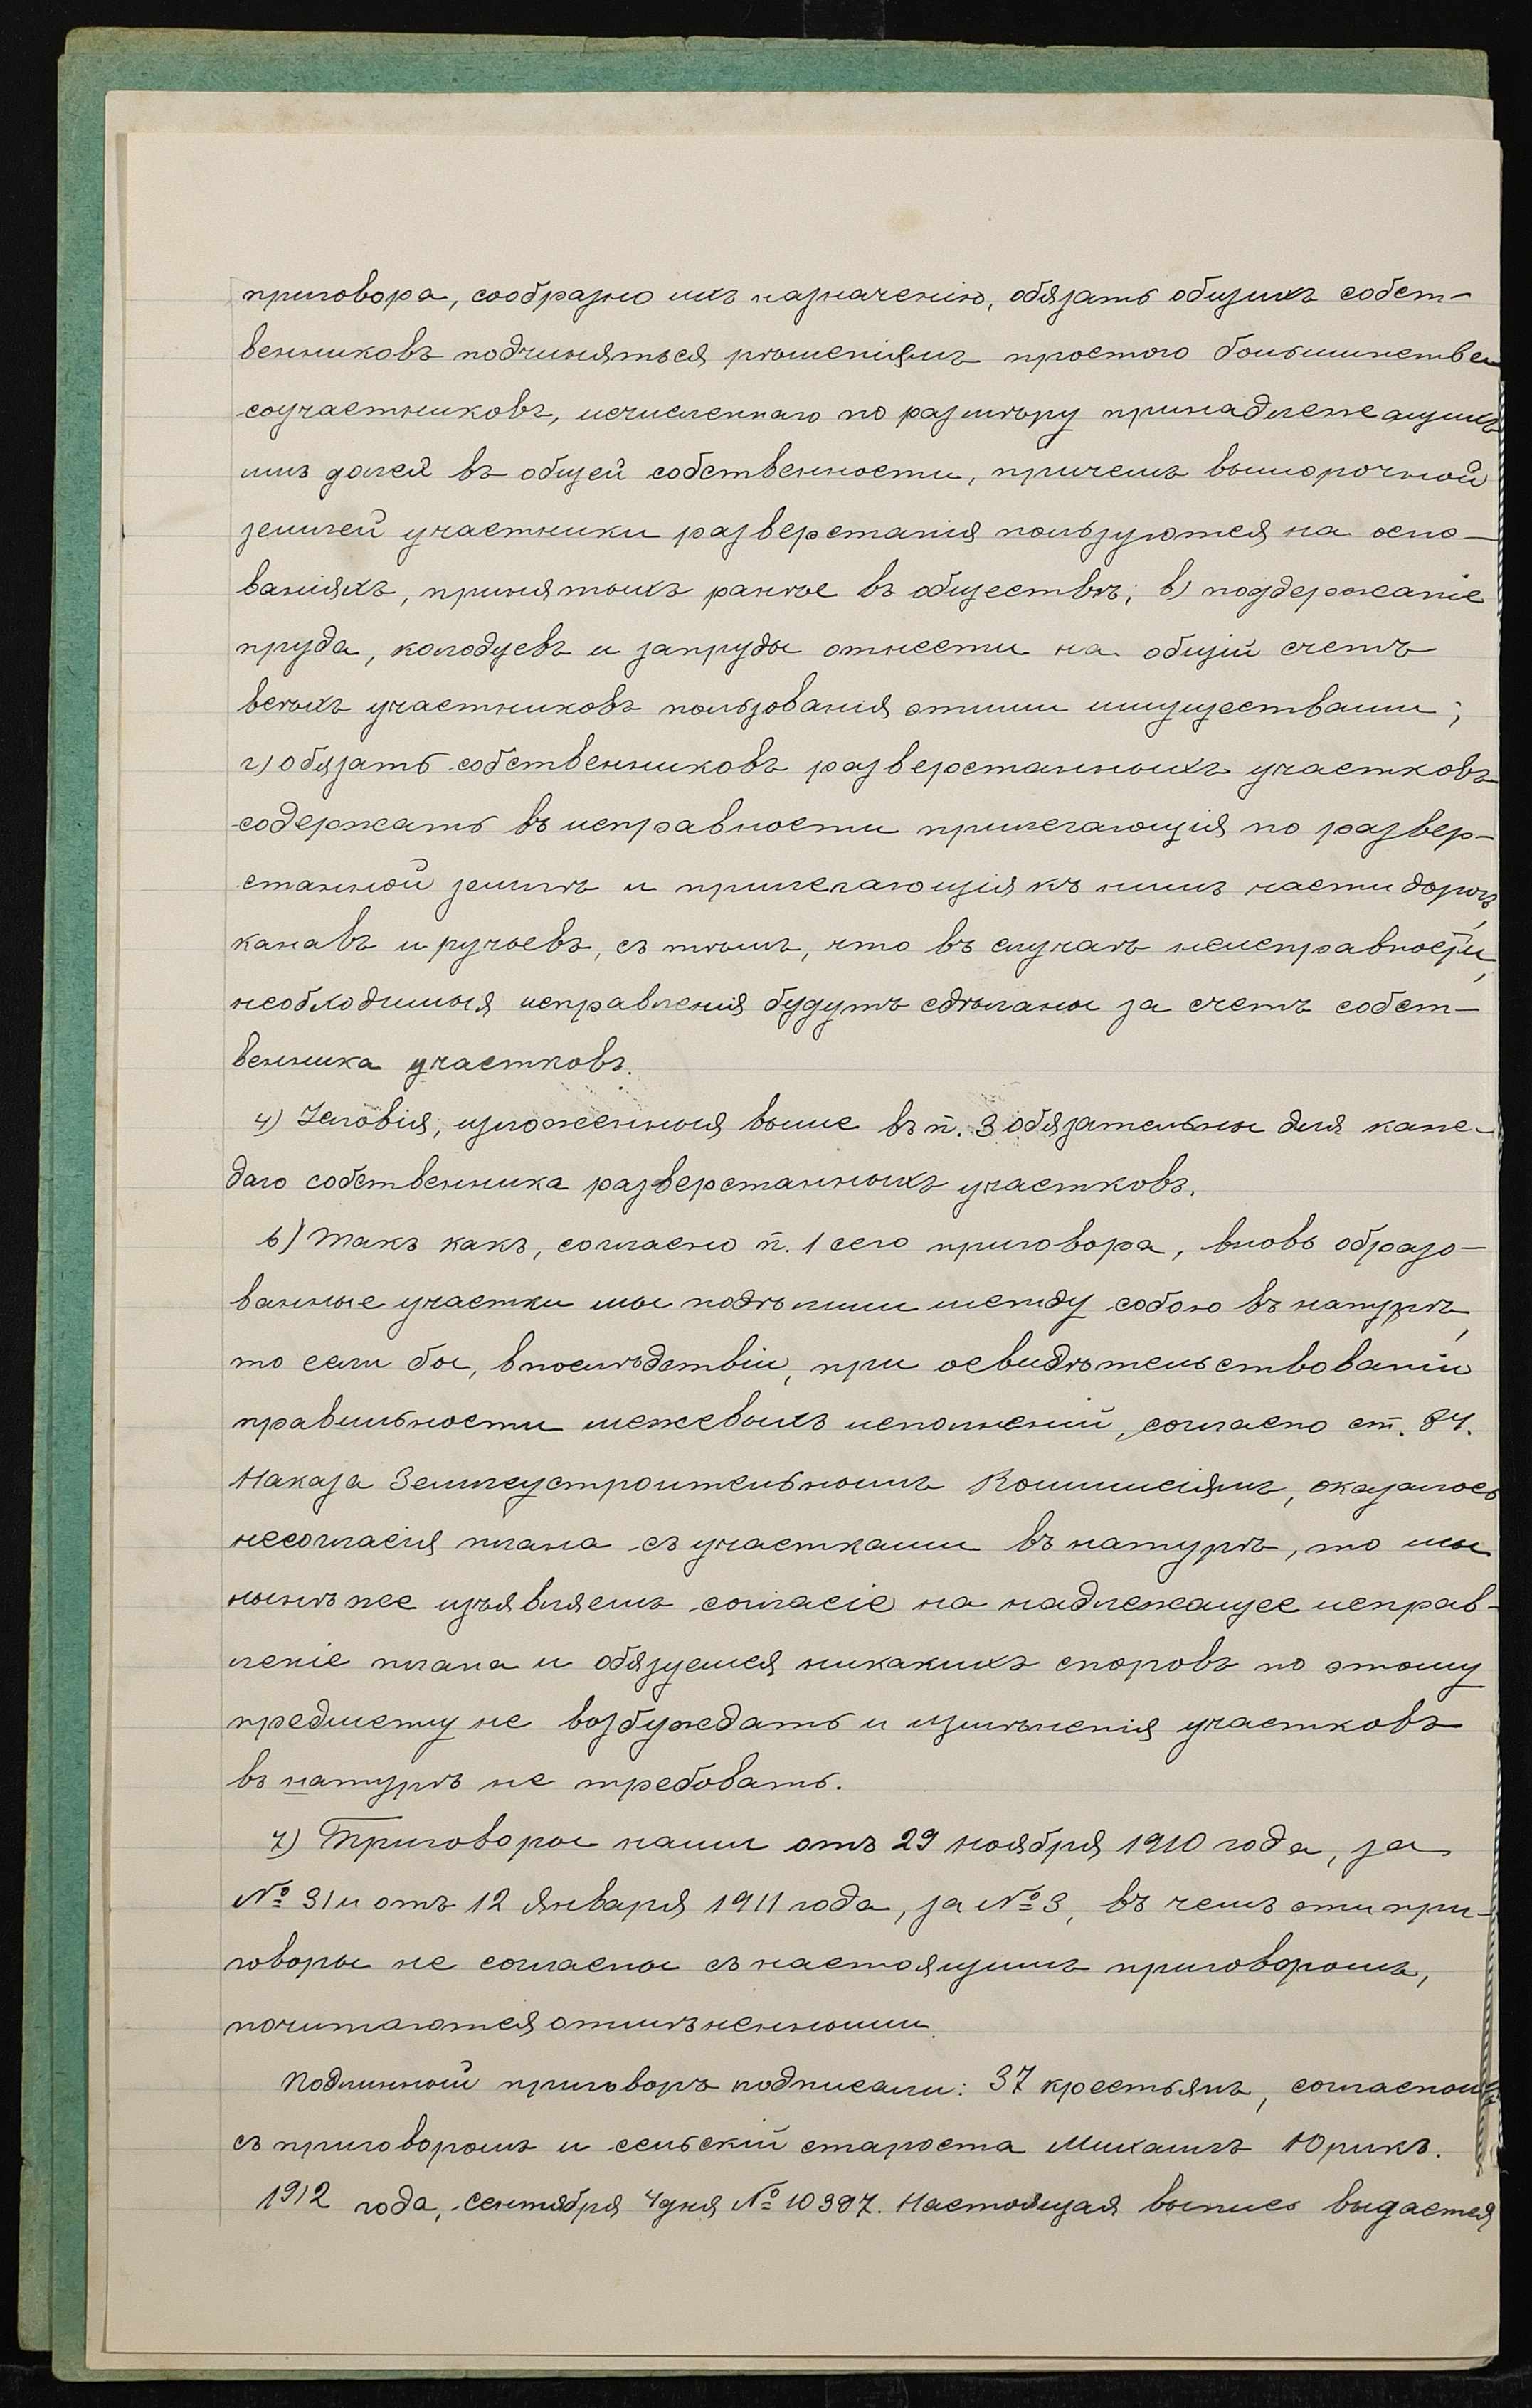 приговора, сообразно ихъ назначенію, обязать общихъ собст-
венниковъ подчиняться рѣшеніямъ простого большинства
соучастниковъ, исчисленнаго по размѣру принадлежащихъ
имъ долей въ общей собственности, причемъ выморочной
землей участники разверстанія пользуются на осно-
ваніяхъ, принятыхъ ранѣе въ обществѣ; в) поддержаніе
пруда, колодцевъ и запруды отнести на общій счетъ
всѣхъ участниковъ пользованія этими имуществами;
г) обязать собственниковъ разверстанныхъ участковъ
содержать въ исправности прилегающія по развер-
станной землѣ и прилегающія къ нимъ части дорогъ,
канавъ и ручьевъ, съ тѣмъ, что въ случаѣ неисправности,
необходимыя исправленія будутъ сдѣланы за счетъ собст-
венника участковъ.
4) Условія, изложенныя выше въ п. 3 обязательны для каж-
даго собственника разверстанныхъ участковъ.
6) Такъ какъ, согласно п. 1 сего приговора, вновь образо-
ванные участки мы подѣлили между собою въ натурѣ,
то если бы, впослѣдствіи, при освидѣтельствованіи
правильности межевыхъ исполненій, согласно ст. 84.
Наказа Землеустроительнымъ Коммисіямъ, оказалось
несогласія плана съ участками въ натурѣ, то мы
нынѣ же изъявляемъ согласіе на надлежащее исправ-
леніе плана и обязуемся никакихъ споровъ по этому
предмету не возбуждать и измѣненія участковъ
въ натурѣ не требовать.
7) Приговоры наши отъ 29 ноября 1910 года, за
№ 31 и отъ 12 Января 1911 года, за № 3, въ чемъ эти при-
говоры не согласны съ настоящимъ приговоромъ,
почитаются отмѣненными.
Подлинный приговоръ подписали: 37 крестьянъ, согласныхъ
съ приговоромъ и сельскій староста Михаилъ Юрикъ.
1912 года, сентября 4 дня № 10397. Настоящая выпись выдается